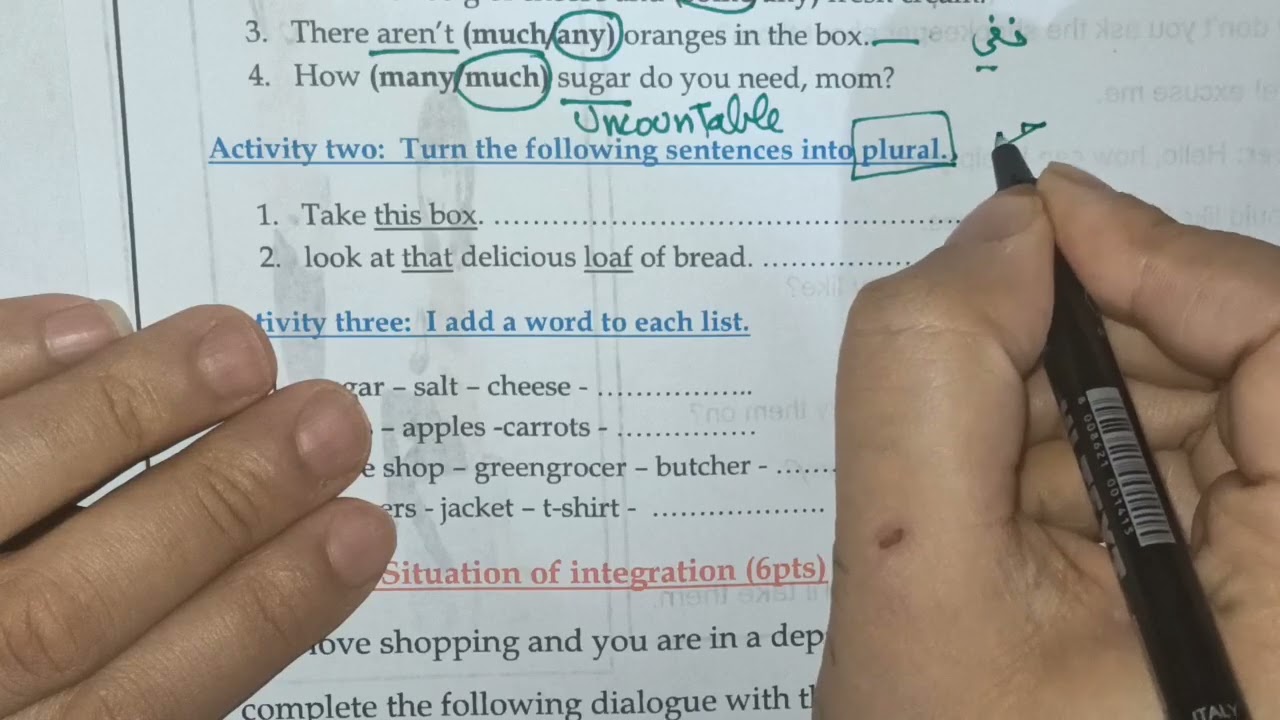 3. There aren't (much/any) oranges in the box. نفي
4. How (many/much) sugar do you need, mom?
Uncountable
Activity two: Turn the following sentences into plural.
1. Take this box. ……………………………………………
2. look at that delicious loaf of bread. ………………
tivity three: I add a word to each list.
gar – salt – cheese - ……………..
– apples -carrots - ……………
e shop – greengrocer – butcher - ……
ers - jacket – t-shirt - ………………
Situation of integration (6pts)
love shopping and you are in a dep
complete the following dialogue with th
8 008621 001415
ITALY